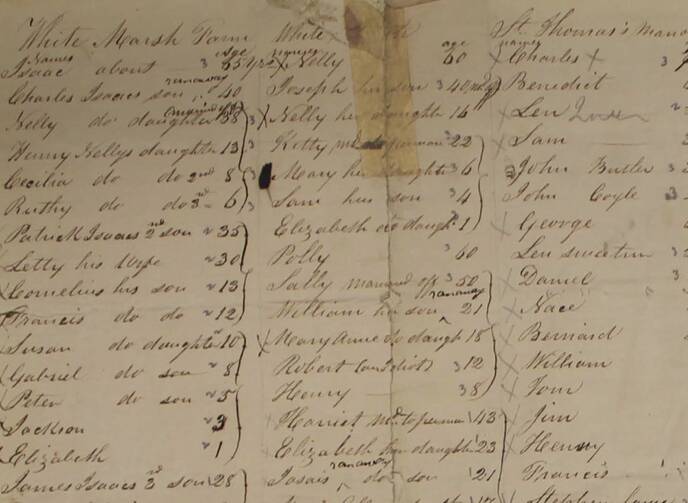 White Marsh Farm
Names age
Isaac about 65 yrs
runaway
Charles Isaacs son 40
married off
Nelly do daughter 38
Henny Nellys daughter 13
Cecilia do do 2nd 8
Ruthy do do 3rd 6
Patrick Isaacs 2nd son 35
Letty his wife 30
Cornelius his son 13
Francis do do 12
Susan do daughter 10
Gabriel do son 8
Peter do son 5
Jackson 3
Elizabeth 1
James Isaacs 3rd son 28
White
names age
Nelly 60
Joseph her son 40
Nelly her daughter 16
Kitty 22
Mary her daughter 6
Sam her son 4
Elizabeth do daugh. 1
Polly 60
Sally married off 50
runaway
William her son 21
Mary Anne do daugh 18
Robert (an Idiot) 12
Henry 8
Harriet 43
Elizabeth her daughter 23
runaway
Isaias do son 21
St. Thomas's Manor
names
Charles
Benedict
Len
Sam
John Butler
John Coyle
George
Len sweeton
Daniel
Nace
Bernard
William
Tom
Jim
Henny
Francis